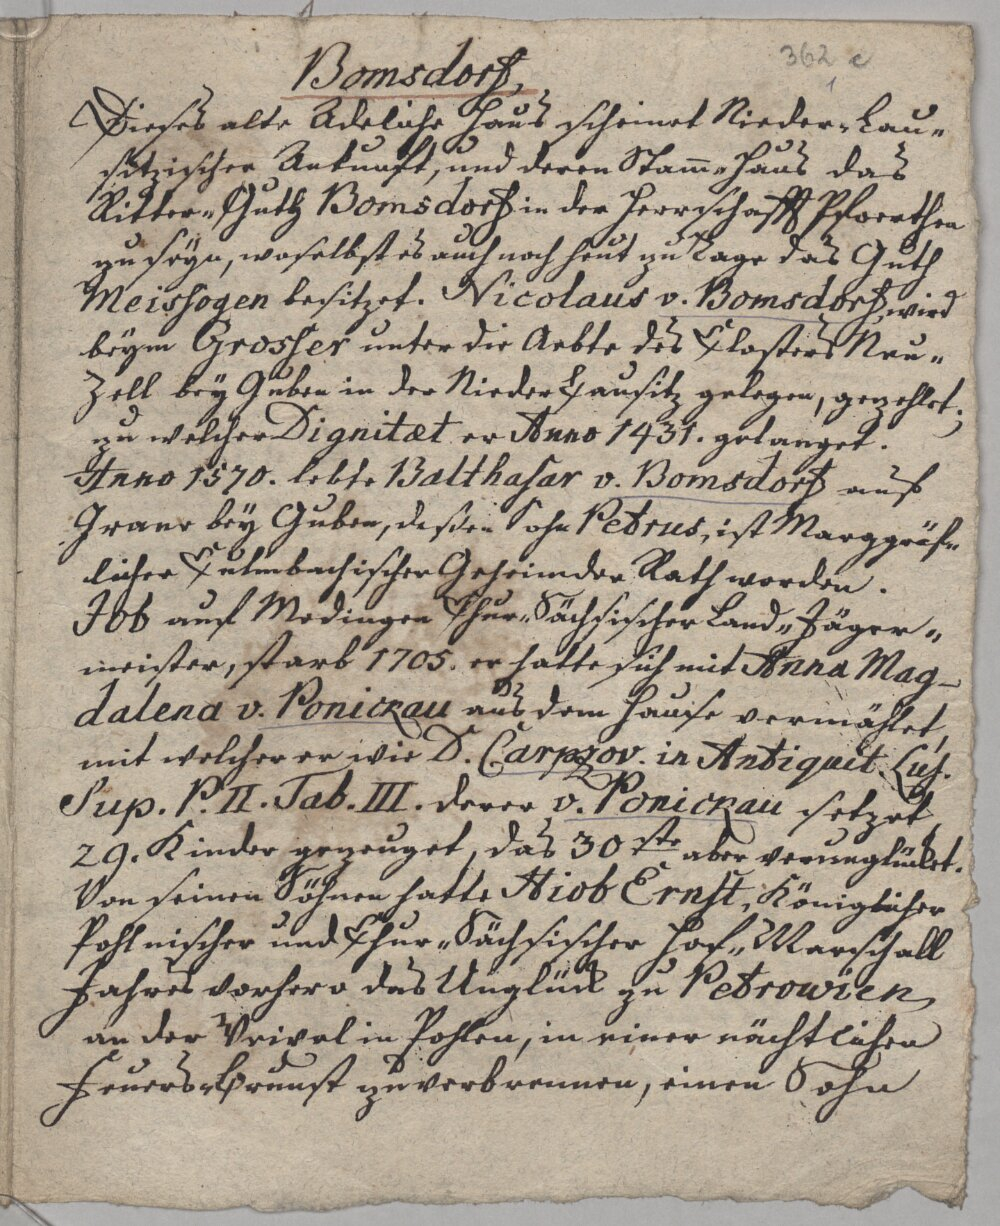 362 c
1
Bomsdorf,
Dieses alte Adeliche Haus scheinet Nieder-Lau-
sitzischer Ankunfft, und deren Stam̄-Haus das
Ritter-Guth Bomsdorf in der Herrschafft Pfoerthen
zu seyn, woselbst es auch noch heut zu Tage das Guth
besitzet. Nicolaus v. Bomsdorf, wird
beym Grosser unter die Aebte des Closters Neu-
Zell bey Guben in der Nieder Lausitz gelegen, gezehlet,
zu welcher Dignitæt er Anno 1431. gelanget.
Anno 1570. lebte Balthasar v. Bomsdorf auf
Grane bey Guben, deßen Sohn Petrus, ist Marggräf-
licher Culmbachischer Geheimder Rath worden.
Job auf Medingen Chur-Sächsischer Land-Jäger-
meister, starb 1705. er hatte sich mit Anna Mag-
dalena v. Ponickau aus dem Hause vermählet,
mit welcher er wie D. Carpzov. in Antiquit. Lus.
Sup. P. II. Tab. III. derer v. Ponickau setzet,
29. Kinder gezeuget, das 30ste aber verunglücket.
Von seinen Söhnen hatte Hiob Ernst, Königlicher
Pohlnischer und Chur-Sächsischer Hof-Marschall
Jahres vorhero das Unglück zu Petrowien,
an der in Pohlen, in einer nächtlichen
Feuers-Brunst zu verbrennen, einen Sohn